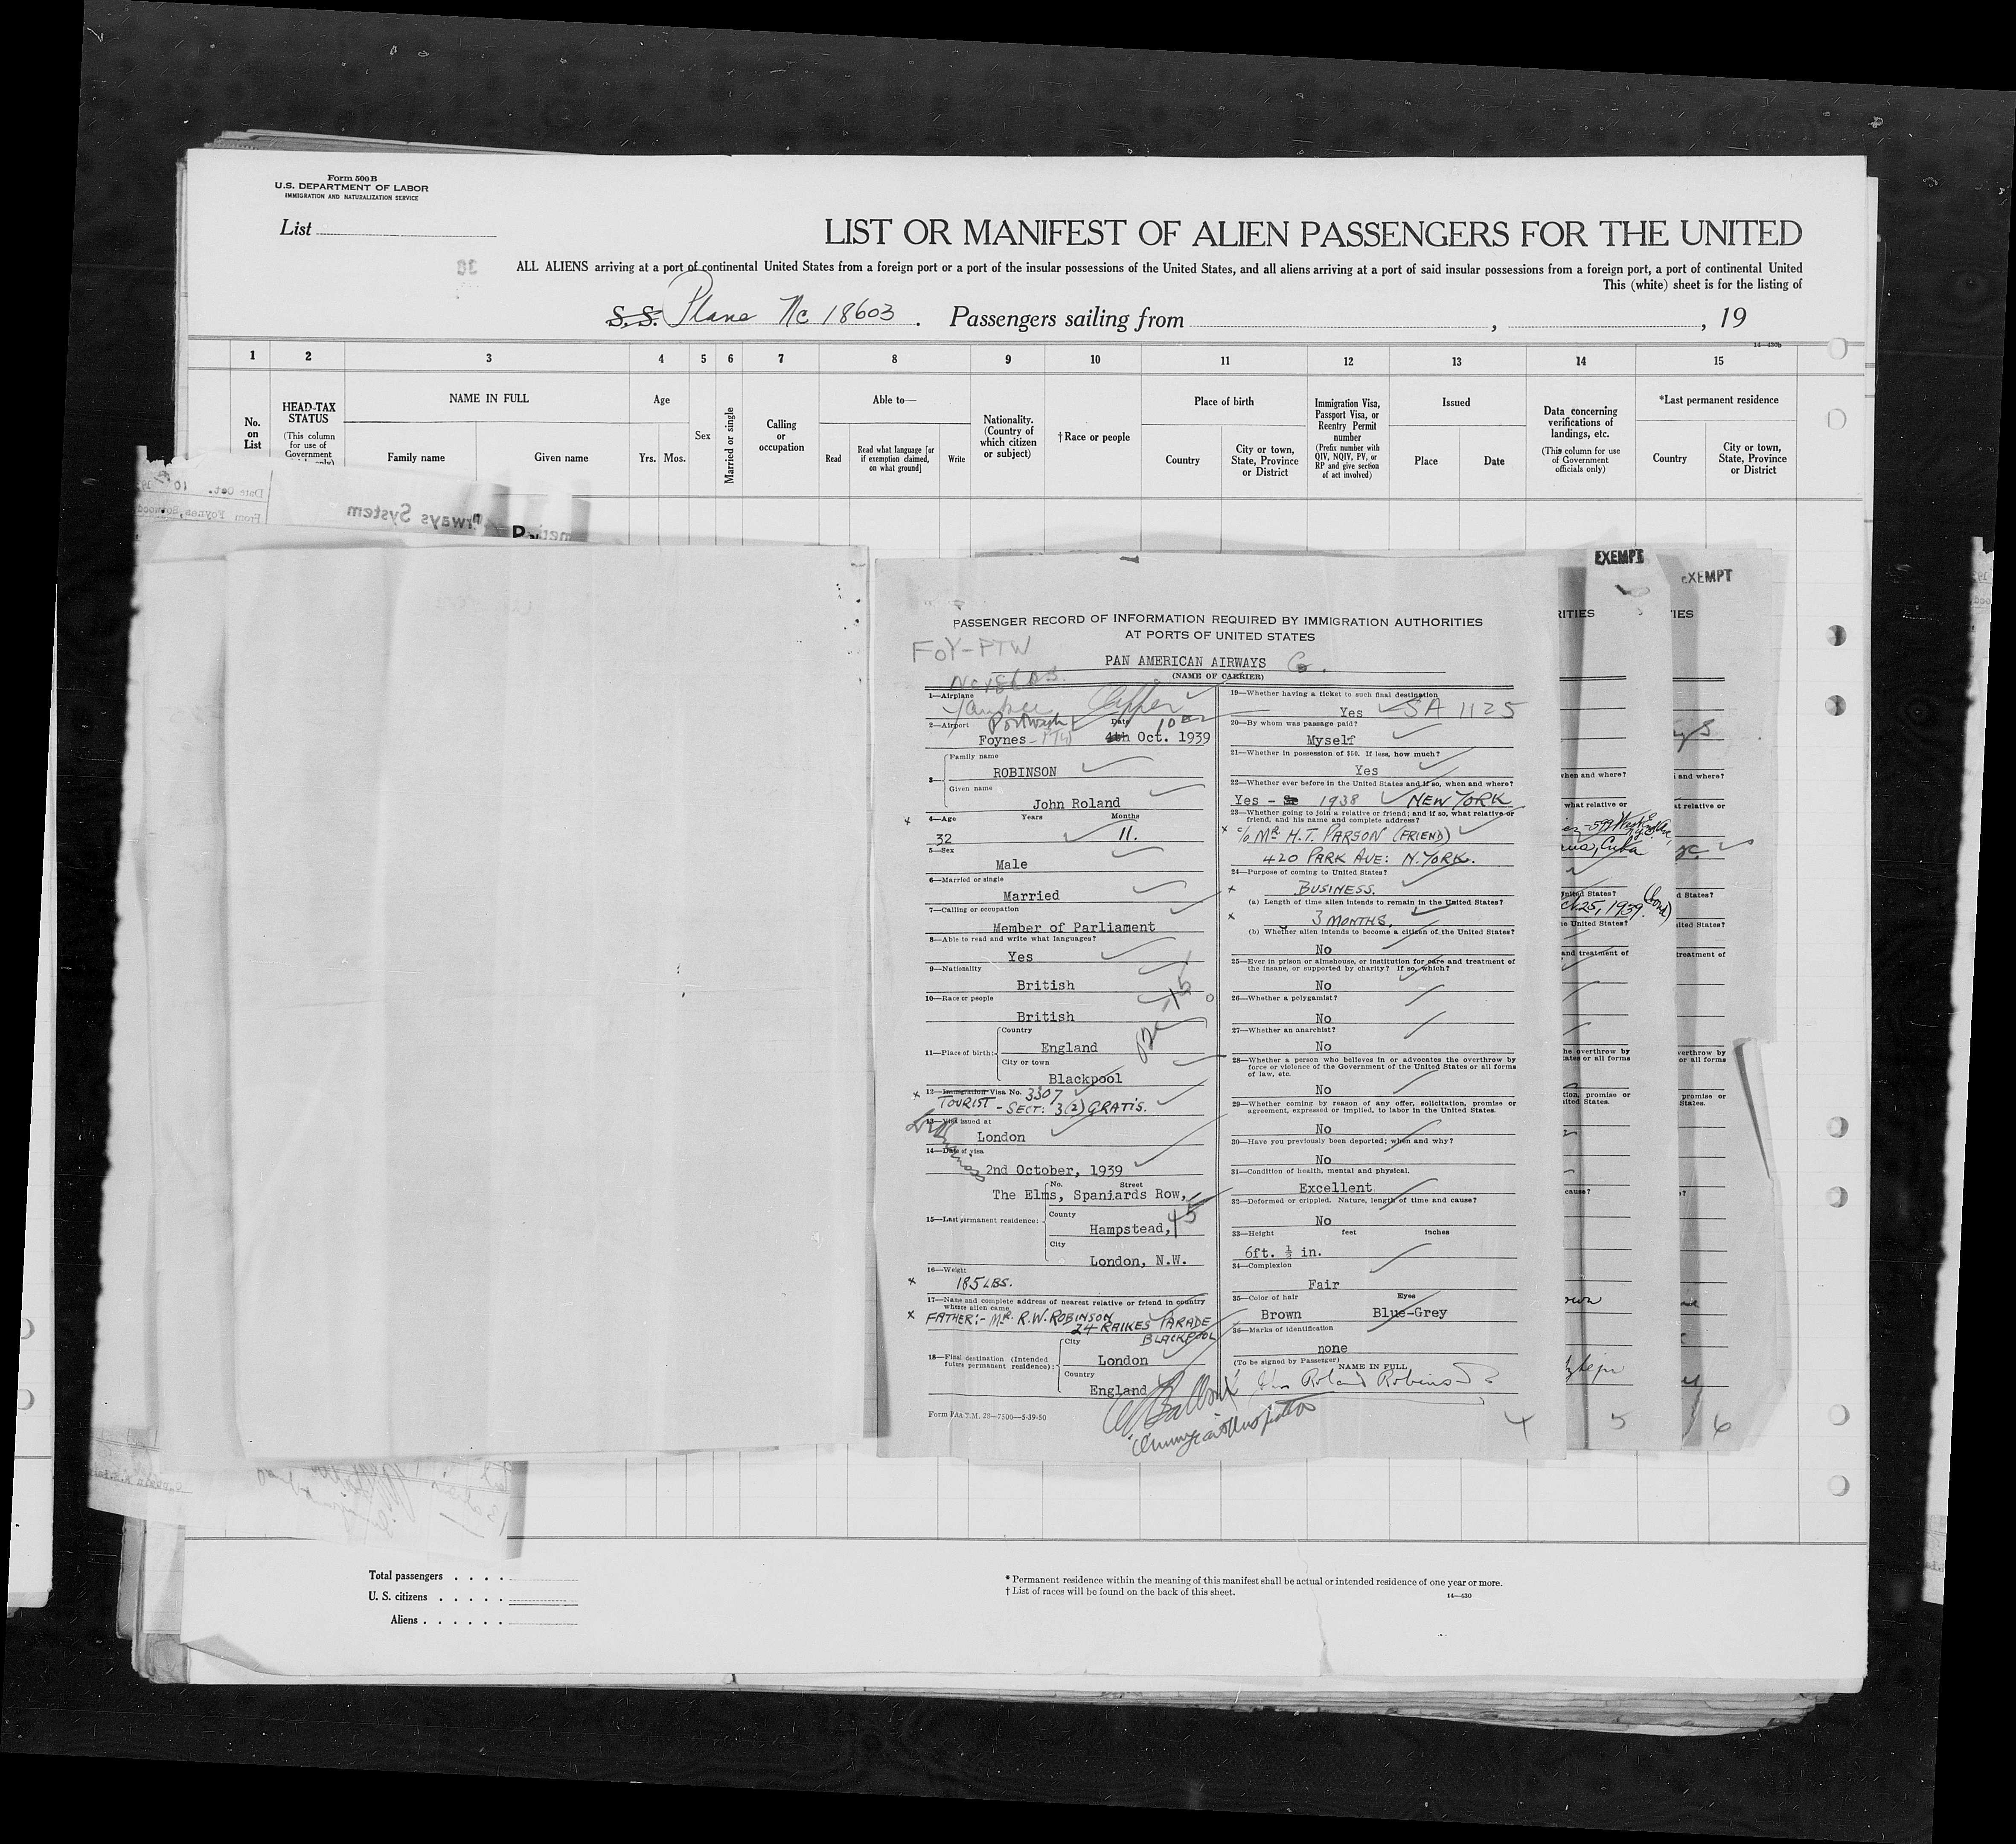 Form 500 B
U.S. DEPARTMENT OF LABOR
IMMIGRATION AND NATURALIZATION SERVICE
List
LIST OR MANIFEST OF ALIEN PASSENGERS FOR THE UNITED
ALL ALIENS arriving at a port of continental United States from a foreign port or a port of the insular possessions of the United States, and all aliens arriving at a port of said insular possessions from a foreign port, a port of continental United
This (white) sheet is for the listing of
S.S. Plane Nc 18603. Passengers sailing from , , 19
14—430b
1 2 3 4 5 6 7 8 9 10 11 12 13 14 15
No. on List
HEAD-TAX STATUS
(This column for use of Government only)
NAME IN FULL
Family name Given name
Age
Yrs. Mos.
Sex
Married or single
Calling or occupation
Able to—
Read
Read what language [or if exemption claimed, on what ground]
Write
Nationality. (Country of which citizen or subject)
†Race or people
Place of birth
Country
City or town, State, Province or District
Immigration Visa, Passport Visa, or Reentry Permit number
(Prefix number with QIV, NQIV, PV, or RP and give section of act involved)
Issued
Place Date
Data concerning verifications of landings, etc.
(This column for use of Government officials only)
*Last permanent residence
Country
City or town, State, Province or District
EXEMPT
EXEMPT
PASSENGER RECORD OF INFORMATION REQUIRED BY IMMIGRATION AUTHORITIES
AT PORTS OF UNITED STATES
FOY-PTW
PAN AMERICAN AIRWAYS Co.
(NAME OF CARRIER)
NC18603.
1—Airplane
Yankee Clipper
2—Airport Date
Foynes - PTW 4th Oct. 1939
Family name
3— ROBINSON
Given name
John Roland
4—Age Years Months
32 11.
5—Sex
Male
6—Married or single
Married
7—Calling or occupation
Member of Parliament
8—Able to read and write what languages?
Yes
9—Nationality
British
10—Race or people
British
11—Place of birth:
Country
England
City or town
Blackpool
12—Immigration Visa No. 3307
TOURIST - SECT: 3(2) GRATIS.
13—Visa issued at
London
14—Date of visa
2nd October, 1939
No. Street
The Elms, Spaniards Row,
15—Last permanent residence:
County
Hampstead,
City
London, N.W.
16—Weight
185 LBS.
17—Name and complete address of nearest relative or friend in country whence alien came
FATHER:- MR. R.W. ROBINSON
24 RAIKES PARADE
BLACKPOOL
18—Final destination (Intended future permanent residence):
City
London
Country
England
Form PAA T.M. 28—7500—5-39-50
19—Whether having a ticket to such final destination
Yes SA 1125
20—By whom was passage paid?
Myself
21—Whether in possession of $50. If less, how much?
Yes
22—Whether ever before in the United States and if so, when and where?
Yes - 1938 NEW YORK
23—Whether going to join a relative or friend; and if so, what relative or friend, and his name and complete address?
c/o MR H.T. PARSON (FRIEND)
420 PARK AVE: N. YORK.
24—Purpose of coming to United States?
BUSINESS.
(a) Length of time alien intends to remain in the United States?
3 MONTHS.
(b) Whether alien intends to become a citizen of the United States?
No
25—Ever in prison or almshouse, or institution for care and treatment of the insane, or supported by charity? If so, which?
No
26—Whether a polygamist?
No
27—Whether an anarchist?
No
28—Whether a person who believes in or advocates the overthrow by force or violence of the Government of the United States or all forms of law, etc.
No
29—Whether coming by reason of any offer, solicitation, promise or agreement, expressed or implied, to labor in the United States.
No
30—Have you previously been deported; when and why?
No
31—Condition of health, mental and physical.
Excellent
32—Deformed or crippled. Nature, length of time and cause?
No
33—Height feet inches
6ft. ½ in.
34—Complexion
Fair
35—Color of hair Eyes
Brown Blue-Grey
36—Marks of identification
none
(To be signed by Passenger)
NAME IN FULL
John Roland Robinson
4 5 6
Total passengers
U. S. citizens
Aliens
* Permanent residence within the meaning of this manifest shall be actual or intended residence of one year or more.
† List of races will be found on the back of this sheet.
14—430